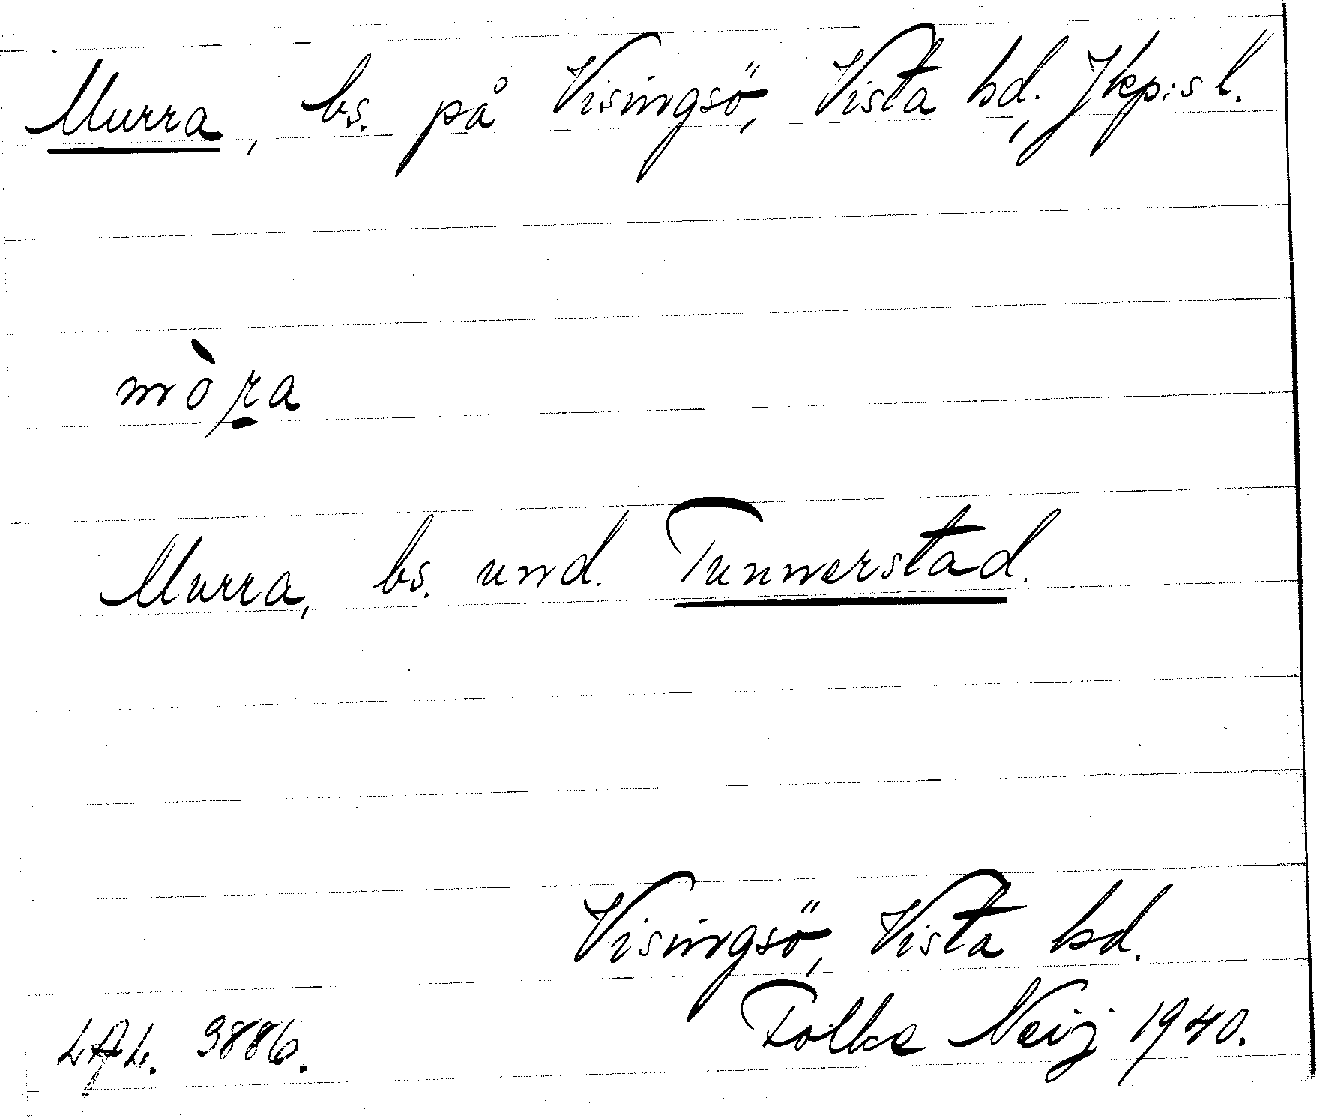 Murra, bs. på Visingsö, Vista hd, Jkp:s l.
mòra
Murra, bs. und. Tunnerstad.
Visingsö, Vista hd.
Folke Neij 1940.
LAL. 3886.